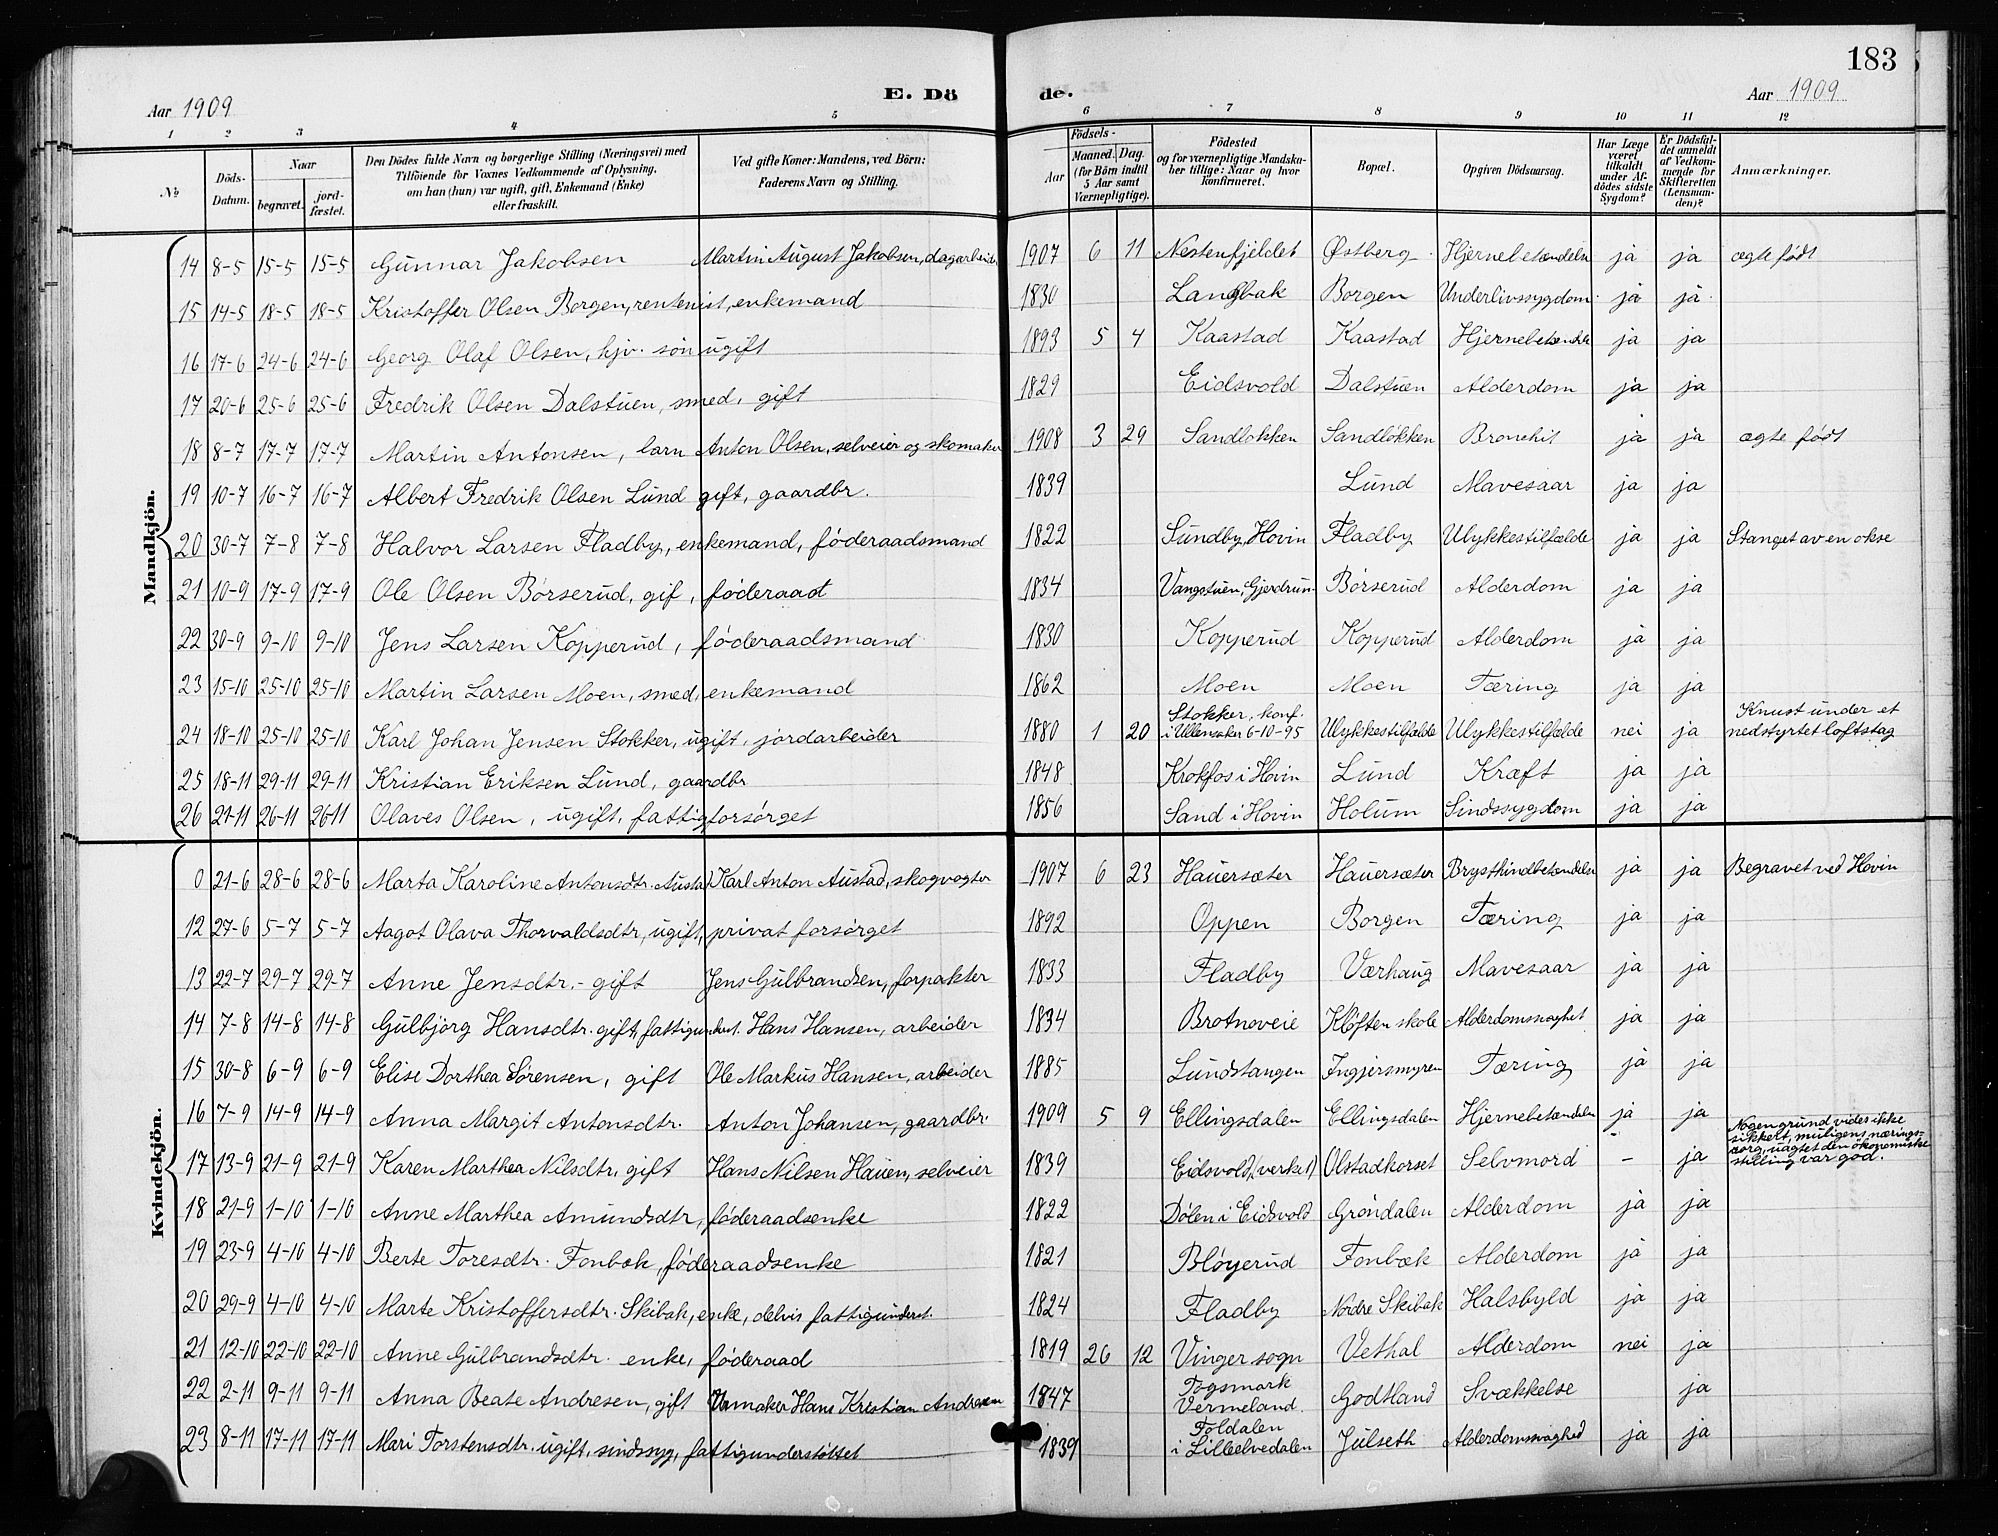 183
Aar 1909 E. Dö de. Aar 1909
1 2 3 4 5 6 7 8 9 10 11 12
No Döds-Datum. Naar begravet. jordfæstet. Den Dödes fulde Navn og borgerlige Stilling (Næringsvei) med Tilföiende for Voxnes Vedkommende af Oplysning, om han (hun) var ugift, gift, Enkemand (Enke) eller fraskilt. Ved gifte Koner: Mandens, ved Börn: Faderens Navn og Stilling. Födsels- Aar Maaned. Dag. (for Börn indtil 5 Aar samt Værnepligtige). Födested og for værnepligtige Mandskaber tillige: Naar og hvor konfirmeret. Bopæl. Opgiven Dödsaarsag. Har Læge været tilkaldt under Afdödes sidste Sygdom? Er Dödsfaldet anmeldt af Vedkommende for Skifteretten (Lensmanden)? Anmærkninger.
Mandkjön.
14 8-5 15-5 15-5 Gunnar Jakobsen Martin August Jakobsen, dagarbeider 1907 6 11 Nestenfjeldet Østberg Hjernebetændelse ja ja ægte født
15 14-5 18-5 18-5 Kristoffer Olsen Borgen, rentenist, enkemand 1830 Langbak Borgen Underlivssygdom ja ja
16 17-6 24-6 24-6 Georg Olaf Olsen, hjv. søn ugift 1893 5 4 Kaastad Kaastad Hjernebetændelse ja ja
17 20-6 25-6 25-6 Fredrik Olsen Dalstuen, smed, gift 1829 Eidsvold Dalstuen Alderdom ja ja
18 8-7 17-7 17-7 Martin Antonsen, barn Anton Olsen, selveier og skomaker 1908 3 29 Sandløkken Sandløkken Bronchit ja ja ægte født
19 10-7 16-7 16-7 Albert Fredrik Olsen Lund gift, gaardbr. 1839 Lund Mavesaar ja ja
20 30-7 7-8 7-8 Halvor Larsen Fladby, enkemand, føderaadsmand 1822 Sundby, Hovin Fladby Ulykkestilfælde ja ja Stanget av en okse
21 10-9 17-9 17-9 Ole Olsen Børserud, gif, føderaad 1834 Vangstuen, Gjerdrum Børserud Alderdom ja ja
22 30-9 9-10 9-10 Jens Larsen Kopperud, føderaadsmand 1830 Kopperud Kopperud Alderdom ja ja
23 15-10 25-10 25-10 Martin Larsen Moen, smed, enkemand 1862 Moen Moen Tæring ja ja
24 18-10 25-10 25-10 Karl Johan Jensen Stokker, ugift, jordarbeider 1880 1 20 Stokker, konf. i Ullensaker 6-10-95 Ulykkestilfælde Ulykkestilfælde nei ja Knust under et nedstyrtet loftstag
25 18-11 29-11 29-11 Kristian Eriksen Lund, gaardbr 1848 Krokfos i Hovin Lund Kræft ja ja
26 21-11 26-11 26-11 Olaves Olsen, ugift, fattigforsørget 1856 Sand i Hovin Holum Sindssygdom ja ja
Kvindekjön.
0 21-6 28-6 28-6 Marta Karoline Antonsdtr. Austad Karl Anton Austad, skogvogter 1907 6 23 Hauersæter Hauersæter Brysthindbetændelse ja ja Begravet ved Hovin
12 27-6 5-7 5-7 Aagot Olava Thorvaldsdtr, ugift, privat forsørget 1892 Oppen Borgen Tæring ja ja
13 22-7 29-7 29-7 Anne Jensdtr. - gift Jens Gulbrandsen, forpakter 1833 Fladby Værhaug Mavesaar ja ja
14 7-8 14-8 14-8 Gulbjørg Hansdtr. gift, fattigunderst. Hans Hansen, arbeider 1834 Brotnoveie Kløften skole Alderdomssvaghet ja ja
15 30-8 6-9 6-9 Elise Dorthea Sørensen, gift Ole Markus Hansen, arbeider 1885 Lundstangen Ingjersmyren Tæring ja ja
16 7-9 14-9 14-9 Anna Margit Antonsdtr. Anton Johansen, gaardbr. 1909 5 9 Ellingsdalen Ellingsdalen Hjernebetændelse ja ja
17 13-9 21-9 21-9 Karen Marthea Nilsdtr, gift Hans Nilsen Hauen, selveier 1839 Eidsvold, (verket) Olstadkorset Selvmord - ja Nogen grund vides ikke sikkert, muligens næringssorg, uagtet den økonomiske stilling var god.
18 21-9 1-10 1-10 Anne Marthea Amundsdtr, føderaadsenke 1822 Dølen i Eidsvold Grøndalen Alderdom ja ja
19 23-9 4-10 4-10 Berte Toresdtr. Fonbæk, føderaadsenke 1821 Bløyerud Fonbæk Alderdom ja ja
20 29-9 4-10 4-10 Marte Kristoffersdtr. Skibak, enke, delvis fattigunderst. 1824 Fladby Nordre Skibak Halsbyld ja ja
21 12-10 22-10 22-10 Anne Gulbrandsdtr. enke, føderaad 1819 26 12 Vinger sogn Vethal Alderdom nei ja
22 2-11 9-11 9-11 Anna Beate Andresen, gift Urmaker Hans Kristian Andresen 1847 Togsmark Vermeland. Godtland Svækkelse ja
23 8-11 17-11 17-11 Mari Torstensdtr. ugift, sindssyg, fattigunderstøttet 1839 Foldalen i Lilleelvedalen Julseth Alderdomssvaghed ja ja